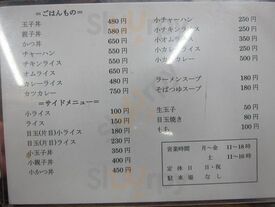 =ごはんもの=
玉子丼 480円
親子丼 580円
かつ丼 650円
チャーハン 550円
チキンライス 550円
オムライス 650円
カレーライス 480円
カツカレー 750円
=サイドメニュー=
小ライス 100円
ライス 150円
目玉(片目)小ライス 180円
目玉(片目)ライス 230円
小玉子丼 350円
小親子丼 400円
小かつ丼 450円
小チャーハン 250円
小チキンライス 250円
小オムライス 350円
小カレーライス 250円
小カツカレー 500円
ラーメンスープ 180円
そばつゆスープ 180円
生玉子 50円
目玉焼き 80円
もち 100円
営業時間 月〜金 11〜18時
土 11〜16時
定休日 日・祝
駐車場 なし